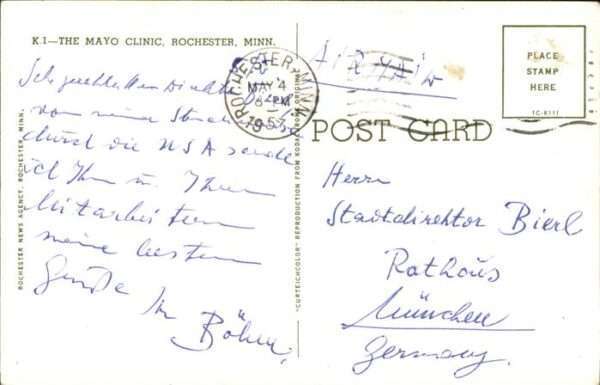 K.1—THE MAYO CLINIC, ROCHESTER, MINN.
Sehr geehrter Herr Direktor
von meiner
durch die USA sende
ich Ihnen u. Ihren
Mitarbeitern
meine besten
Grüße Ihr
Böhm.
ROCHESTER NEWS AGENCY, ROCHESTER, MINN.
"CURTEICHCOLOR" REPRODUCTION FROM KODACHROME ORIGINAL
ROCHESTER, MINN.
MAY 4
PM
1953
AIRMAIL
PLACE
STAMP
HERE
POST CARD
Herrn
Stadtdirektor Bierl
Rathaus
München
Germany.